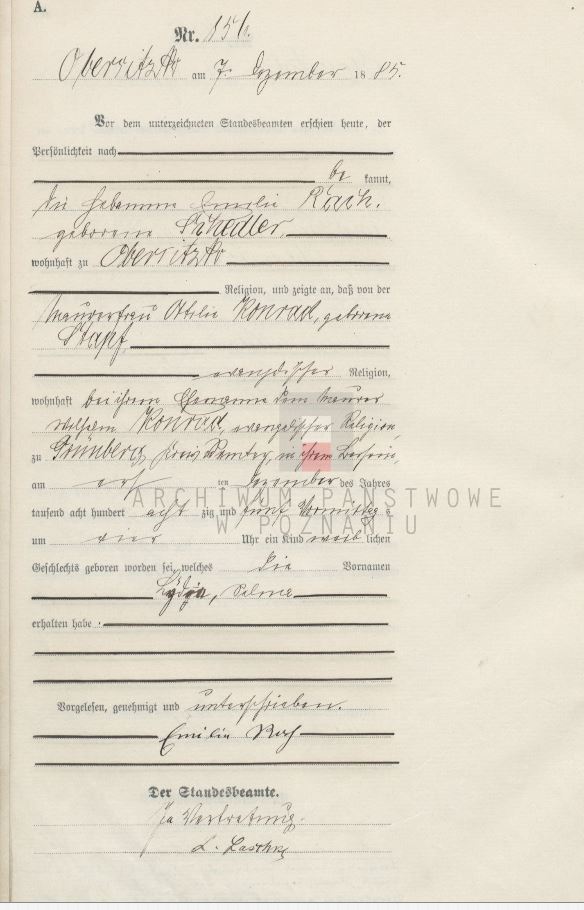 A.
Nr. 156.
Obersitzko am 7. Dezember 1885.
Vor dem unterzeichneten Standesbeamten erschien heute, der
Persönlichkeit nach
be kannt,
die Hebamme Emilie Rach,
geborene Schedler,
wohnhaft zu Obersitzko
Religion, und zeigte an, daß von der
Maurerfrau Ottilie Konrad, geborene
Stapf,
evangelischer Religion,
wohnhaft bei ihrem Ehemanne dem Maurer
Wilhelm Konrad, evangelischer Religion,
zu Grünberg, Kreis Samter, in ihrem Beisein,
am ersten Dezember des Jahres
tausend acht hundert acht zig und fünf Vormittags
um vier Uhr ein Kind weib lichen
Geschlechts geboren worden sei, welches die Vornamen
Lydia, Selma
erhalten habe.
Vorgelesen, genehmigt und unterschrieben.
Emilie Rach
Der Standesbeamte.
In Vertretung.
L.
ARCHIWUM PAŃSTWOWE
W POZNANIU